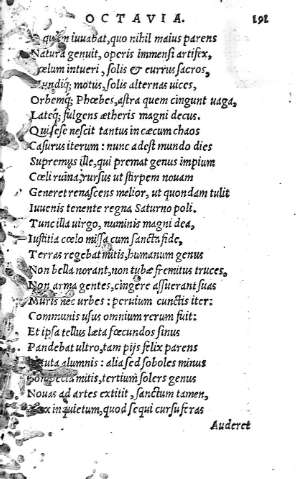 OCTAVIA. 191
quem iuuabat, quo nihil maius parens
Natura genuit, operis immensi artifex,
Cælum intueri, solis & currus sacros,
Mundiq; motus, solis alternas uices,
Orbemq; Phœbes, astra quem cingunt uaga,
Lateq; fulgens ætheris magni decus.
Qui sese nescit tantus in cæcum chaos
Casurus iterum: nunc adest mundo dies
Supremus ille, qui premat genus impium
Cœli ruina, rursus ut stirpem nouam
Generet renascens melior, ut quondam tulit
Iuuenis tenente regna Saturno poli.
Tunc illa uirgo, numinis magni dea,
Iustitia cœlo missa cum sancta fide,
Terras regebat mitis, humanum genus
Non bella norant, non tubæ fremitus truces,
Non arma gentes, cingere assuerant suas
Muris nec urbes: peruium cunctis iter:
Communis usus omnium rerum fuit:
Et ipsa tellus læta fœcundos sinus
Pandebat ultro, tam pijs felix parens
tuta alumnis: alia sed soboles minus
conspecta mitis, tertium solers genus
Nouas ad artes extitit, sanctum tamen,
Mox inquietum, quod sequi cursu feras
Auderet